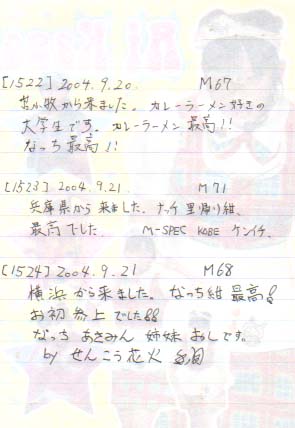 [1522] 2004.9.20. M67
苫小牧から来ました。カレーラーメン好きの
大学生です。カレーラーメン最高!!
なっち最高!!
[1523] 2004.9.21. M71
兵庫県から来ました。ナッチ里帰り組、
最高でした。 M-SPEC KOBE ケンイチ.
[1524] 2004.9.21 M68
横浜から来ました。なっち組最高!
お初参上でした!!
なっち あさみん 姉妹 おしです。
by せんこう花火